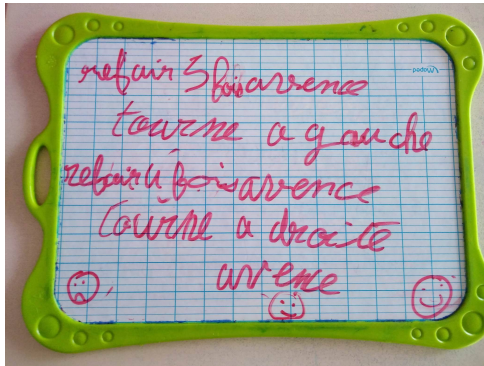 refair 5 fois avence
tourne a gauche
refair 4 fois avence
tourne a droite
avence